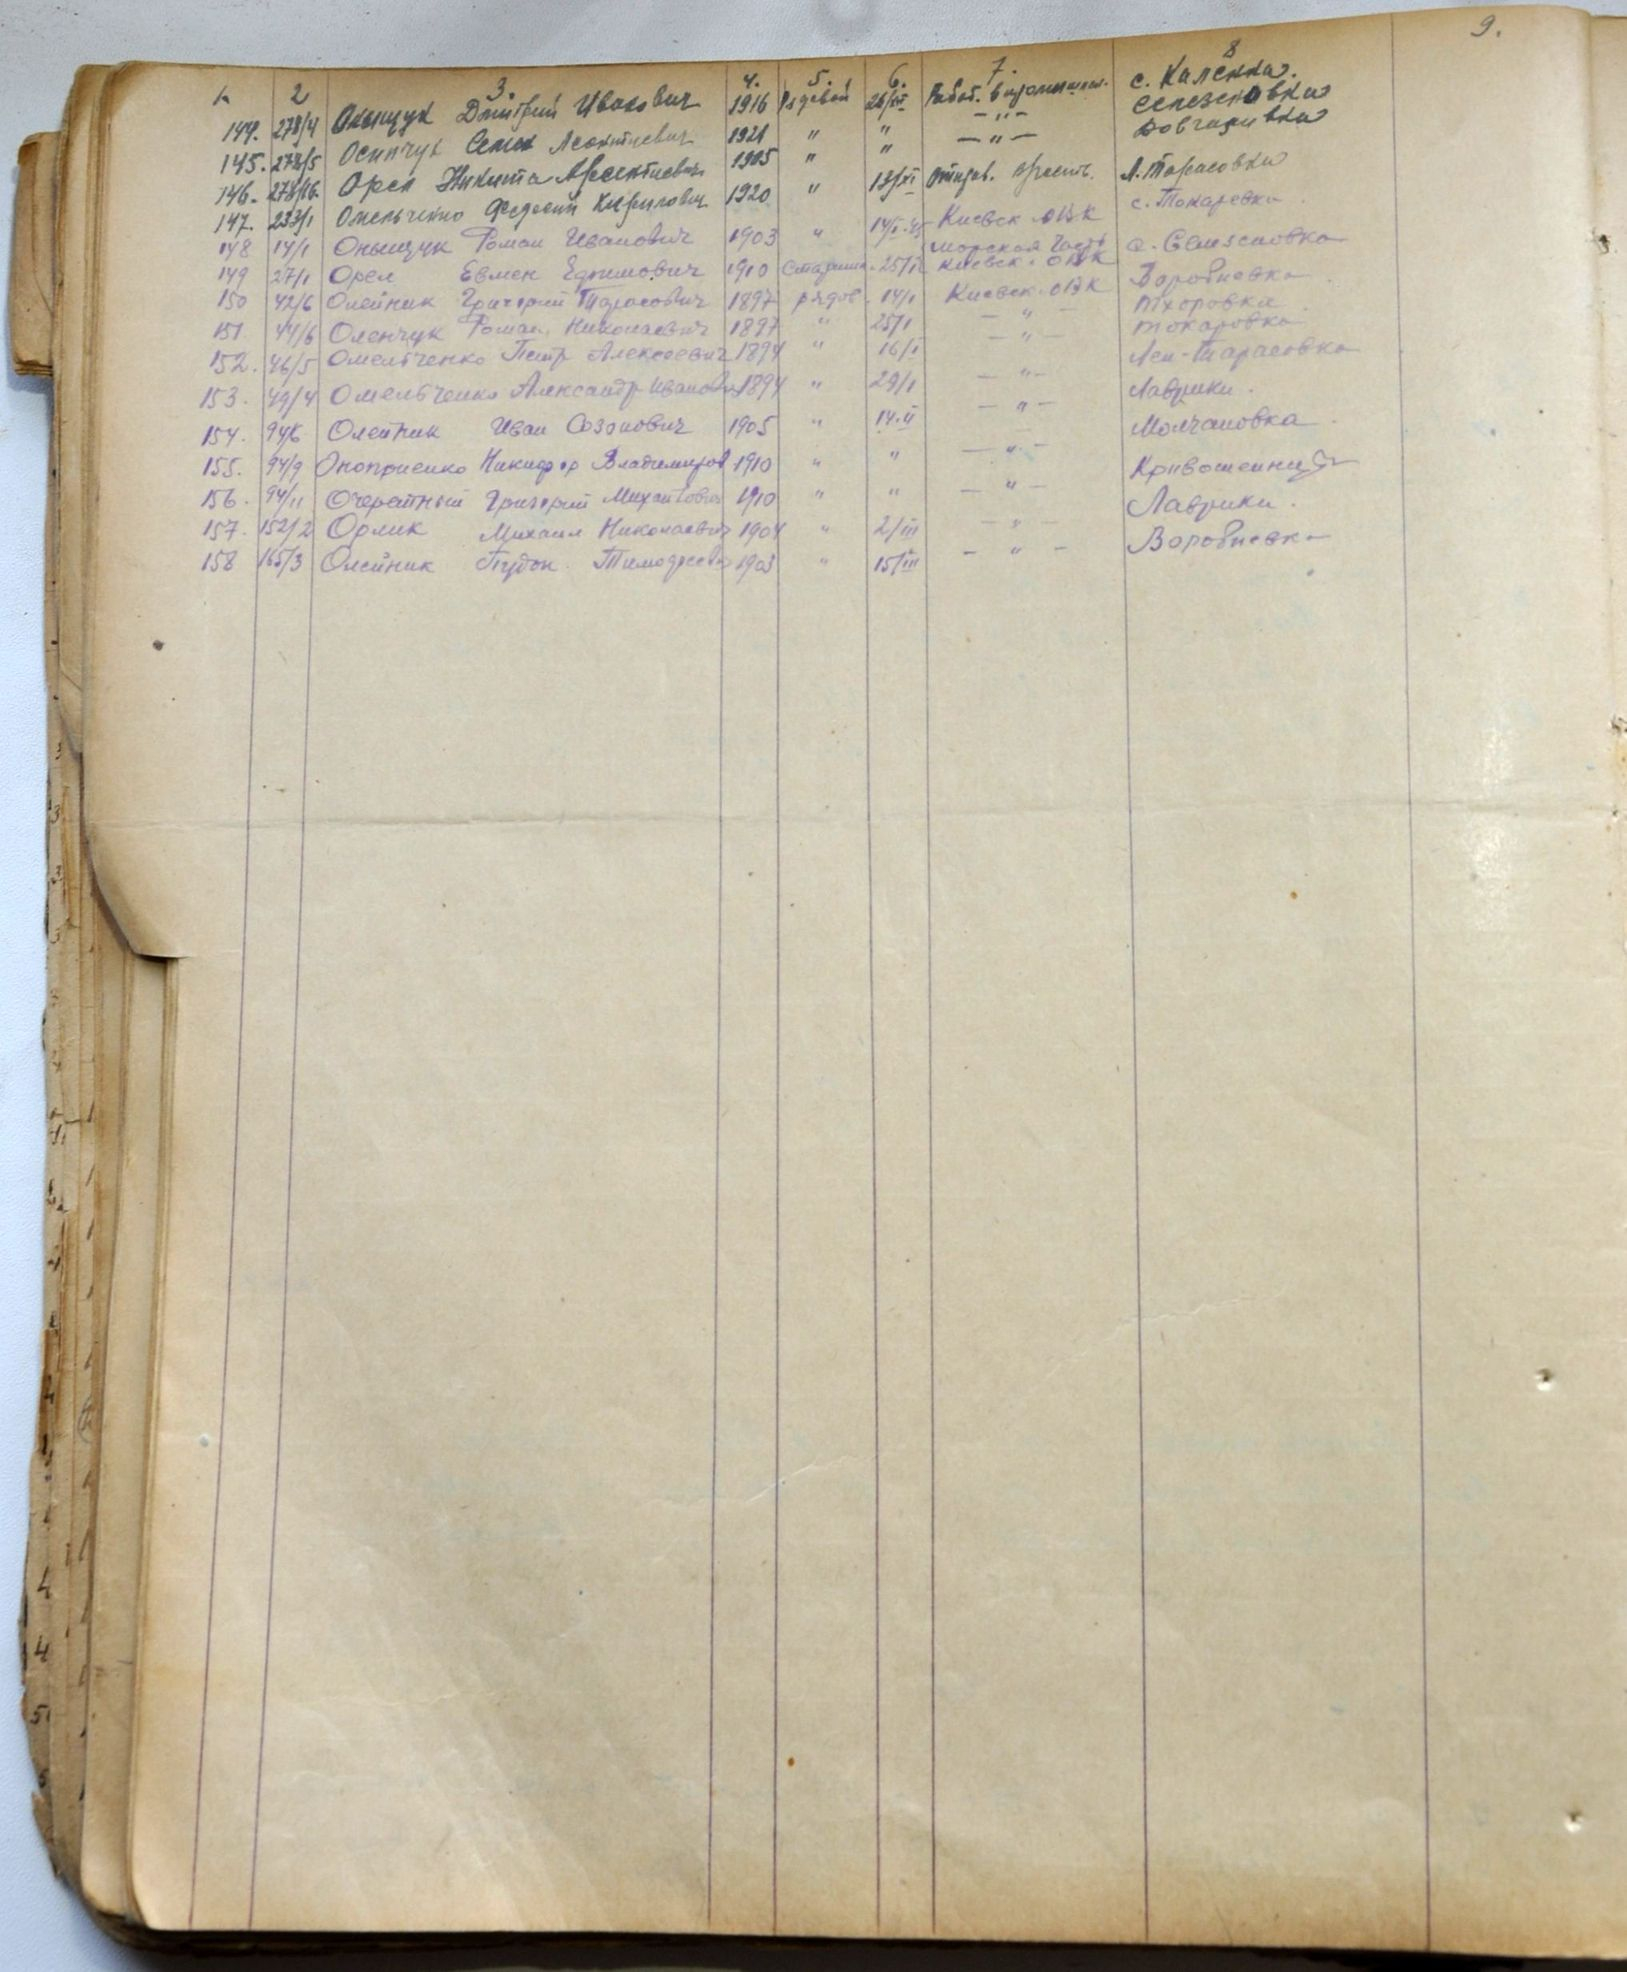 1. 2 3. 4. 5. 6. 7. 8 9.
144. 278/4 Онищук Дмитрий Иванович 1916 Рядовой 26/XI Работ. в промышлен. с. Каленка.
145. 278/5 Осипчук Семен Леонтиевич 1921 " " — " — Селезеновка
146. 278/16. Орел Никита Арсентиевич 1905 " " — " — Довгаливка
147. 233/1 Омельченко Федосий Кирилович 1920 " 13/XI Отправ. Л. Тарасовка
148 14/1 Онищук Роман Иванович 1903 " 14/I-45 Киевск. ОВК с. Токаревка.
149 27/1 Орел Евмен Ефимович 1910 Старшин. 25/I Морская часть Киевск. ОВК с. Селизеновка
150 42/6 Олейник Григорий Тарасович 1897 рядов. 14/1 Киевск. ОВК Воробиевка
151. 44/6 Оленчук Роман Николаевич 1897 " 25/1 — " — Тхоровка
152. 46/5 Омельченко Петр Алексеевич 1894 " 16/I — " — Токаровка
153. 49/4 Омельченко Александр Иванов. 1894 " 29/1 — " — Лен-Тарасовка
154. 94/6 Олейник Иван Созонович 1905 " 14.II — " — Лаврики.
155. 94/9 Оноприенко Никифор Владимиров 1910 " " — " — Молчановка
156. 94/11 Очеретный Григорий Михайлович 1910 " " — " — Кривошеинцы
157. 152/2 Орлик Михаил Николаевич 1904 " 2/III — " — Лаврики.
158 165/3 Олейник Тимофеев 1903 " 15/III — " — Воробиевка